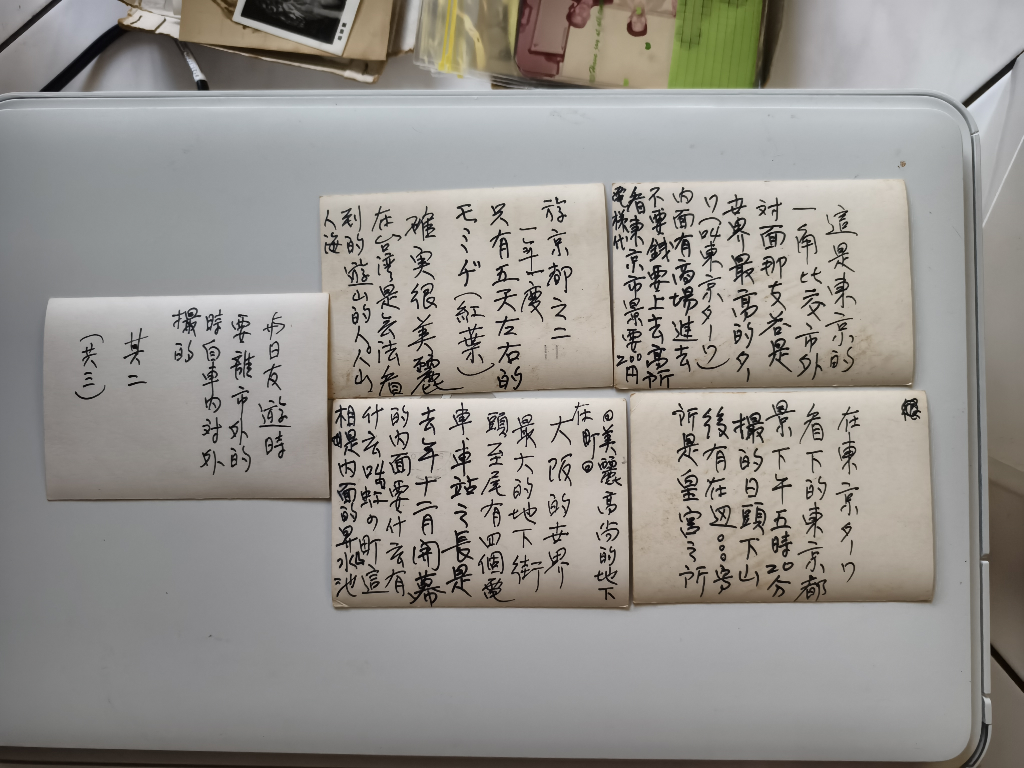 這是東京的
一角比交市外
対面那支塔是
世界最高的タ一
ワ(叫東京タ一ワ)
内面有商場進去
不要錢要上去高所
看東京市景要200円
電梯代
遊京都之二
一年一度
只有五天左右的
モミヂ(紅葉)
確実很美麗
在台湾是無法看
到的遊山的人人山
人海
在東京タ一ワ
看下的東京都
景下午五時20分
撮的日頭下山
後有在迌。。。旁
所是皇宮之所
日美麗高尚的地下
在町日
大阪的世界
最大的地下街
頭至尾有四個電
車車站之長是
去年十二月開幕
的内面要什么有
什么叫虹の町這
相是内面的昇水池
与日友遊時
要離市外的
時自車内対外
撮的
其二
(共三)